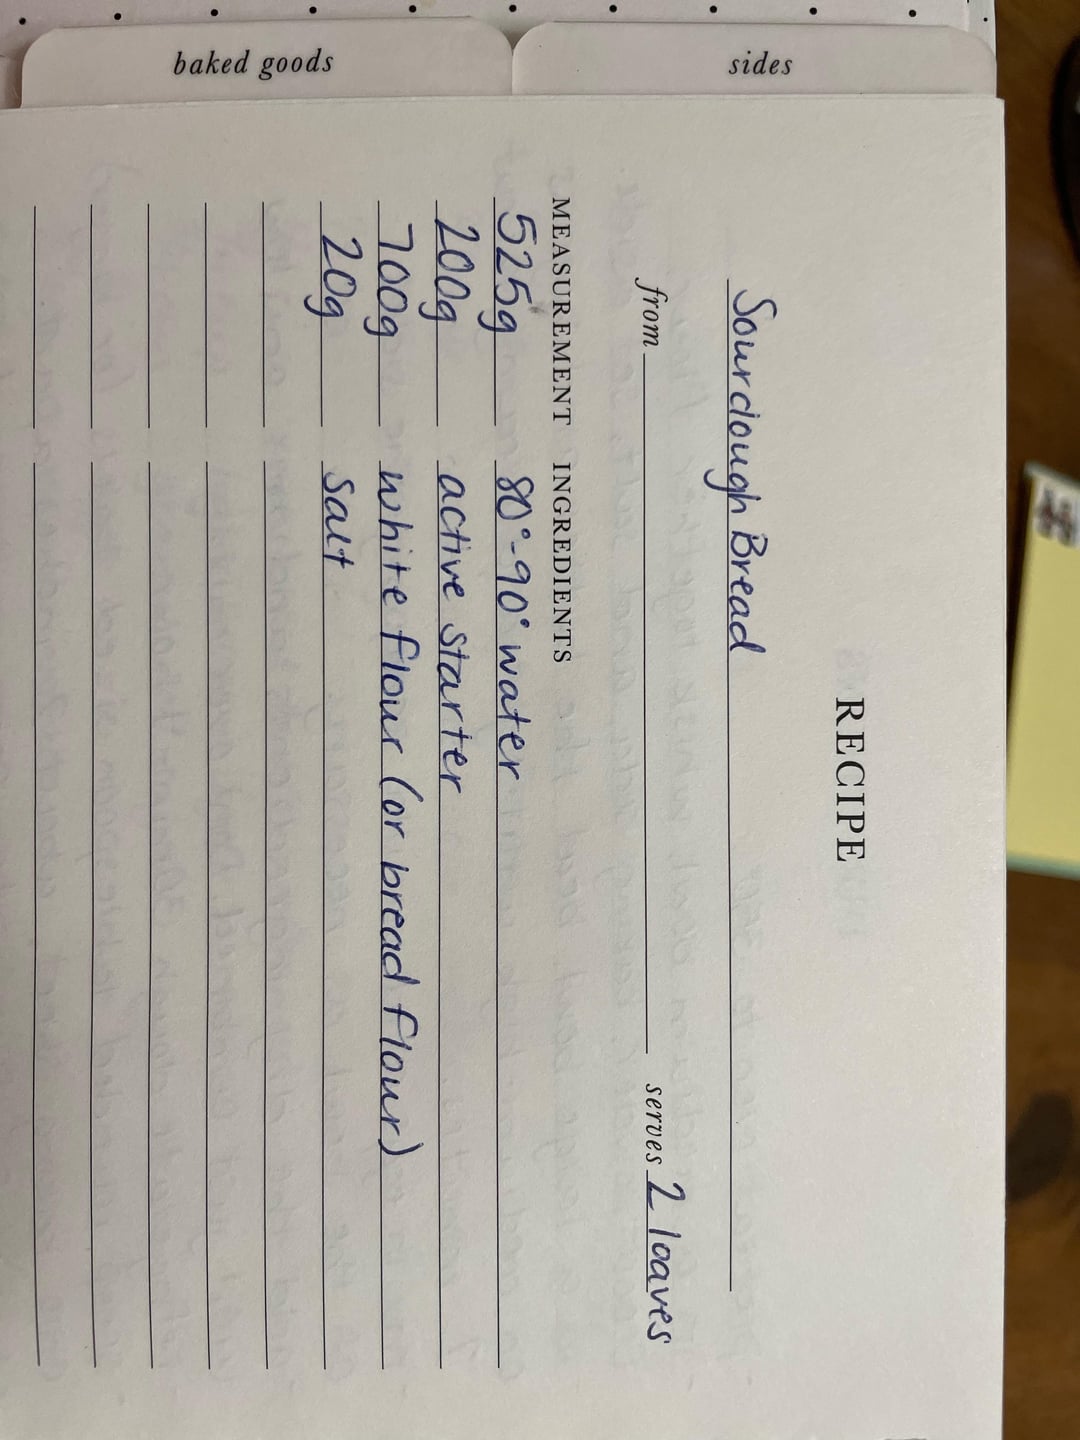 baked goods
sides
RECIPE
Sourdough Bread
from serves 2 loaves
MEASUREMENT INGREDIENTS
525g 80°-90° water
200g active starter
700g white flour (or bread flour)
20g salt